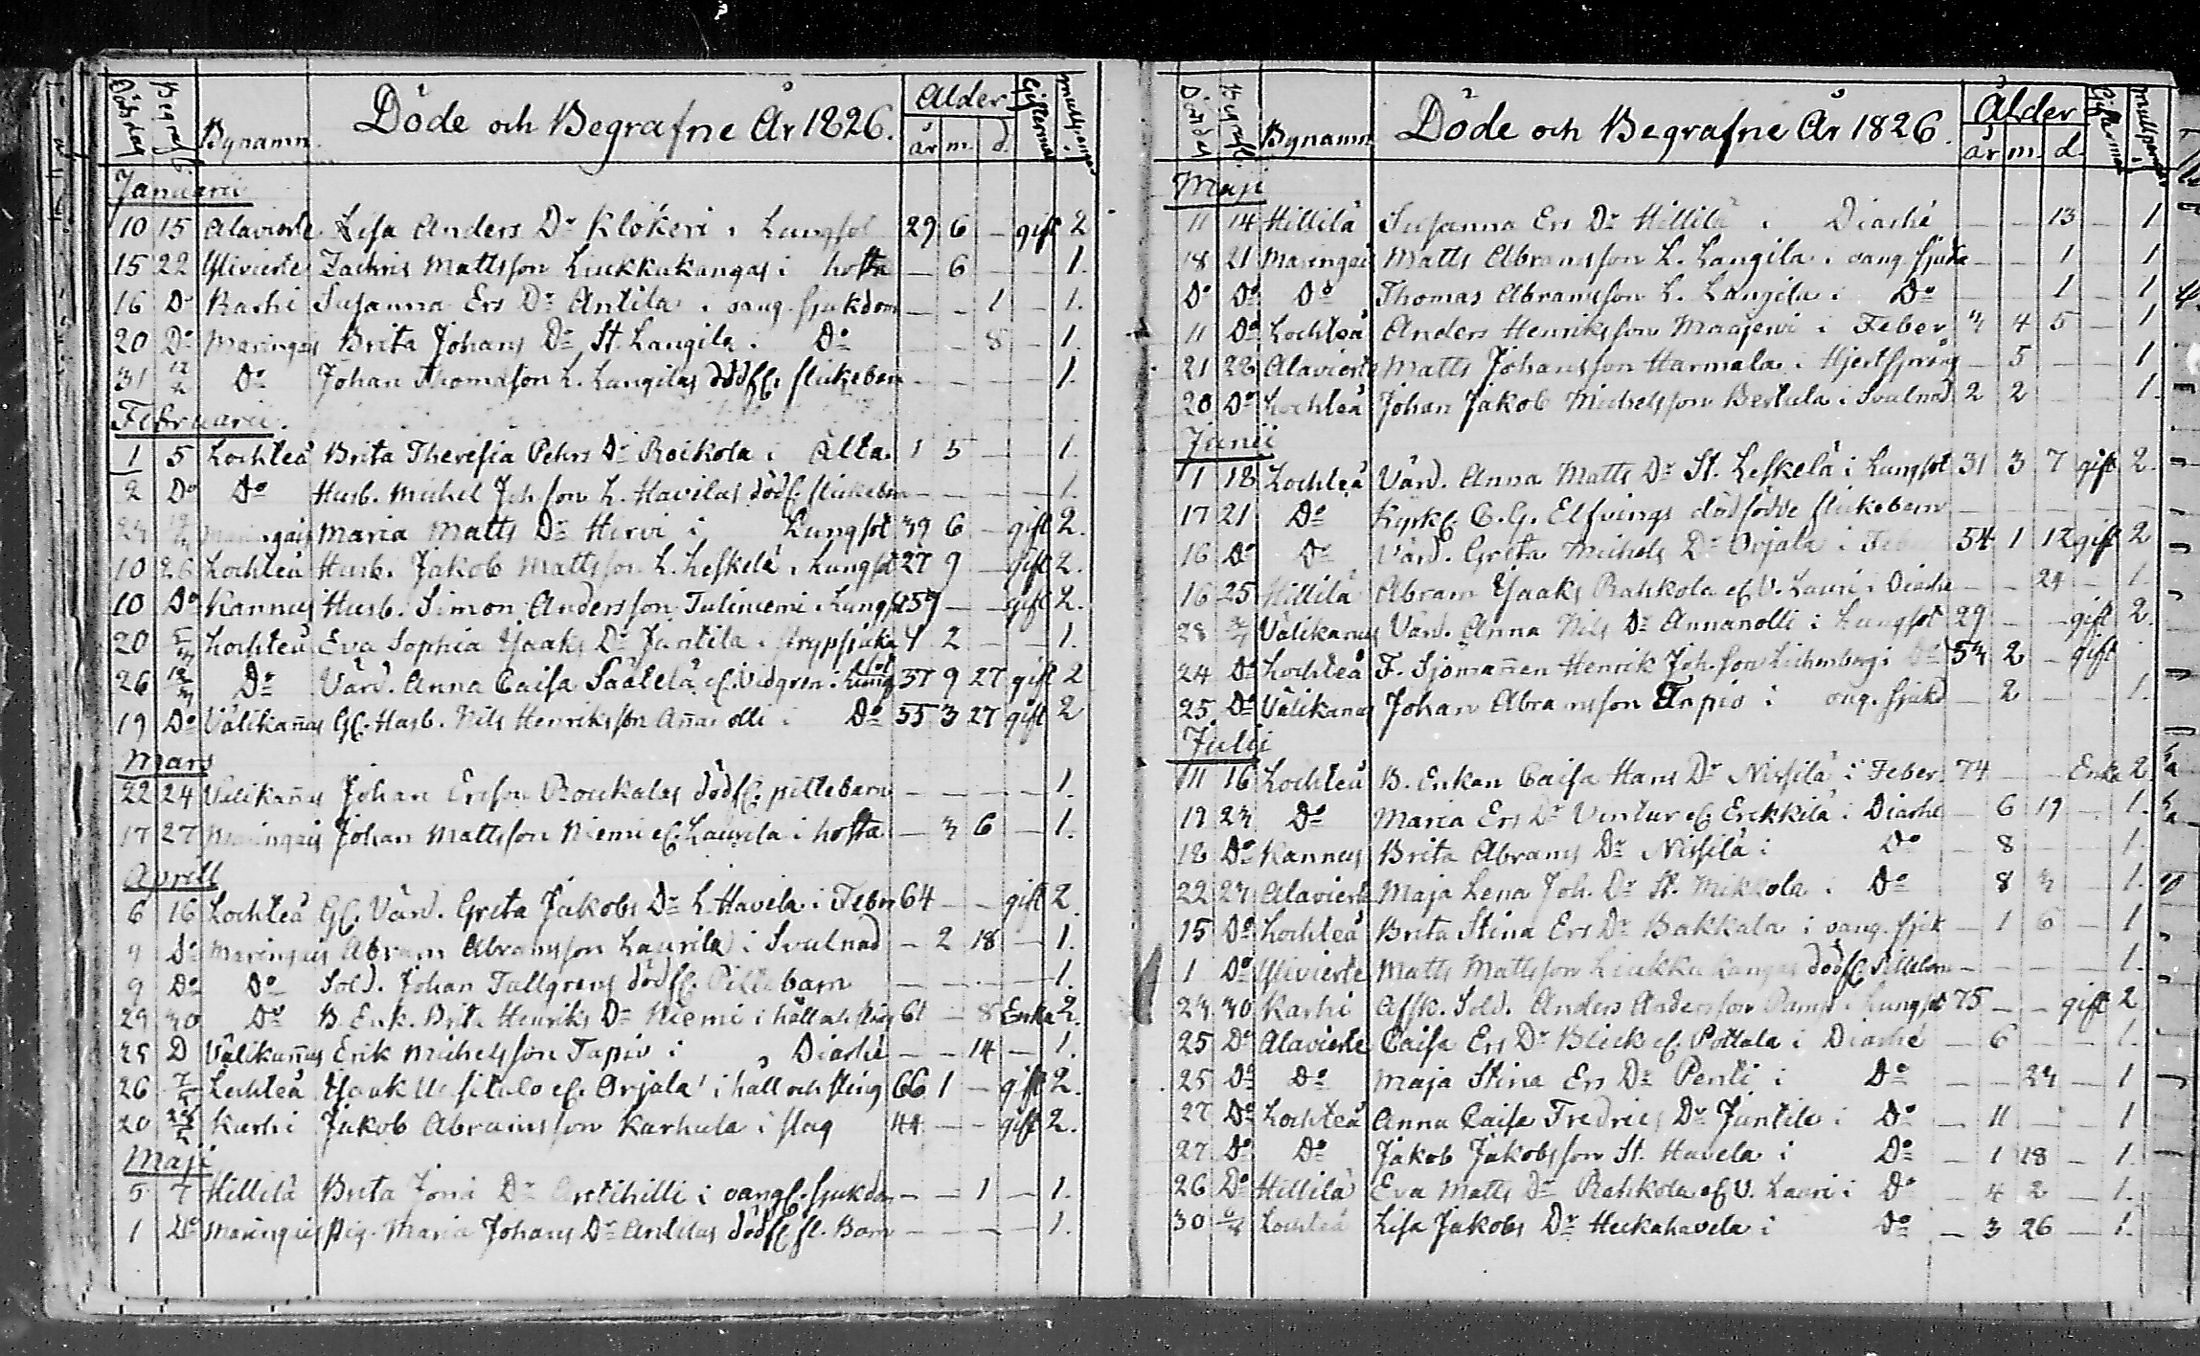 Dödsdag Begrafd Bynamn. Döde och Begrafne År 1826. Ålder år m. d. Giftermål
Januarii
10 15 Alavierte Lisa Anders Dr Klökeri i Lungsot 29 6 – gift 2
15 22 Ylivierte Zachris Mattsson Liukkukangas i hosta – 6 – – 1.
16 Do Karhi Susanna Ers Dr Antila i oang. sjukdom – – 1 – 1.
20 Do Maringais Brita Johans Dr St. Langila i Do – – 8 – 1.
31 12/2 Do Johan Thomasson L. Langilas dödf. flickebarn – – – – 1.
Februarii.
1 5 Lochteå Brita Theresia Pehrs Dr Roikola i Älta 1 5 – – 1.
2 Do Do Husb. Michel Joh.son L. Havilas dödf. flickebarn – – – – 1.
23 19/3 Maringais Maria Matts Dr Hirvi i Lungsot 39 6 – gift 2.
10 26 Lochteå Husb. Jakob Mattsson L. Leskelä i Lungsot 27 9 – gift 2.
10 Do Kannus Husb. Simon Andersson Tuliniemi i Lungsot 57 – – gift 2.
20 5/3 Lochteå Eva Sophia Isaaks Dr Juntila i Strypsjuka 4 2 – – 1.
26 12/3 Do Värd. Anna Caisa Säälelä ef. Vidgren i Lungsot 37 9 27 gift 2
19 Do Välikañus Gl. Husb. Nils Henriksson Añanolli i Do 55 3 27 gift 2
Mars
22 24 Välikañus Johan Ersson Roukalas dödf. piltebarn – – – – 1.
17 27 Maringais Johan Mattsson Niemi ef. Laurila i hosta – 3 6 – 1.
Aprill
6 16 Lochteå Gl. Värd. Greta Jakobs Dr L. Havela i Feber 64 – – gift 2.
9 Do Maringais Abram Abramsson Laurila i Svulnad – 2 18 – 1.
9 Do Do Sold. Johan Tallgrens dödf. Piltebarn – – – – 1.
29 30 Do B. Enk. Brit. Henriks Dr Niemi i håll och sting 61 – 8 Enka 2.
25 D Välikañus Erik Michelsson Tapio i Diarhé – – 14 – 1.
26 7/5 Lochteå Isaak Uusitalo ef. Orjala i håll och sting 66 1 – gift 2.
20 Karhi Jakob Abramsson Karhula i slag 44 – – gift 2.
Maji
5 7 Hillilä Brita Jona Dr Anttihilli i oangf. sjukdom – – 1 – 1.
1 Do Maringais Pig. Maria Johans Dr Antilas dödf. fl. Barn – – – – 1.
Dödsdag Begrafd. Bynamn Döde och Begrafne År 1826. Ålder år m. d. Giftermål
Maji
11 14 Hillilä Susanna Ers Dr Hillilä i Diarhé – – 13 – 1.
18 21 Maringais Matts Abramsson L. Langila i oang. sjukd – – 1 1
Do Do Do Thomas Abramsson L. Langila i Do – – 1 – 1
11 Do Lochteå Anders Henriksson Maajervi i Feber 3 4 5 – 1
21 28 Alavierte Matts Johansson Harmala i Hjertsprång – 5 – – 1
20 Do Lochteå Johan Jakob Michelsson Bertula i Svulnad 2 2 1.
Junii
11 18 Lochteå Värd. Anna Matts Dr St. Leskelä i Lungsot 31 3 7 gift 2.
17 21 Do Kyrkf. C. G. Elfvings dödfödde flickebarn – – – – –
16 Do Do Värd. Greta Michels Dr Orjala i Feber 54 1 12 gift 2
16 25 Hillilä Abram Isaaks Rahkola ef. V. Lauri i Diarhe – – 24 – 1.
28 2/7 Välikanus Värd. Anna Nils Dr Annanolli i Lungsot 29 – – gift 2
24 Do Lochteå F. Sjömañen Henrik Joh.son Lichenberg i Do 53 2 – gift
25 Do Välikanus Johan Abramsson Tapio i oang. sjukd – 2 – 1.
Julii
11 16 Lochteå B. Enkan Caisa Hans Dr Nissilä i Feber. 74 – – Enka 2
19 23 Do Maria Ers Dr Ventur ef. Erkkilä i Diarhe – 6 19 – 1.
18 Do Kannus Brita Abrams Dr Nissilä i Do – 8 – – 1.
22 23 Alavierte Maja Lena Joh. Dr St. Mikkola i Do 8 3 – 1.
15 Do Lochteå Brita Stina Ers Dr Bakkala i oang. sjuk – 1 6 – 1
1 Do Ylivierte Matts Mattsson Liukkukangas dödf. Piltebarn – – – – 1.
23 30 Karhi Afsk. Sold. Anders Andersson Damp i Lungsot 75 – – gift 2
25 Do Alavierte Caisa Ers Dr Bleck ef. Pottala i Diarhé – 6 – – 1.
25 Do Do Maja Stina Ers Dr Pentti i Do – – 23 – 1
27 Do Lochteå Anna Caisa Fredrics Dr Juntila i Do – 11 – – 1
27 Do Do Jakob Jakobsson St. Havela i Do – 1 18 – 1.
26 Do Hillilä Eva Matts Dr Rahkola ef. V. Lauri i Do – 4 2 – 1.
30 6/8 Lochteå Lisa Jakobs Dr Heikahavela i Do – 3 26 – 1.